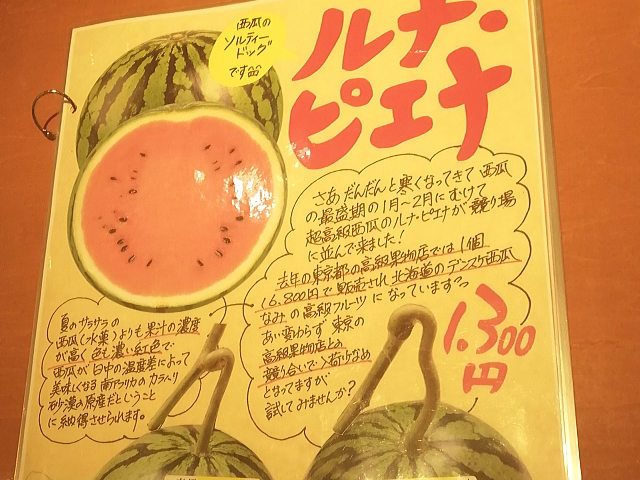 西瓜の
ソルティー
ドッグ
です
ルナ・
ピエナ
さあ だんだんと寒くなってきて 西瓜
の最盛期の1月〜2月にむけて
超高級西瓜のルナ・ピエナが競り場
に並んで来ました!
去年の東京都の高級果物店では1個
16,800円で販売され 北海道のデンスケ西瓜
なみの高級フルーツになっています
あい変わらず 東京の
高級果物店との
競り合いで入荷少なめ
となってますが
試してみませんか?
1,300
円
夏のサラサラの
西瓜(水菓)よりも果汁の濃度
が高く色も濃い紅色で
西瓜が日中の温度差によって
美味しくなる南アフリカのカラハリ
砂漠の原産だということ
に納得させられます。